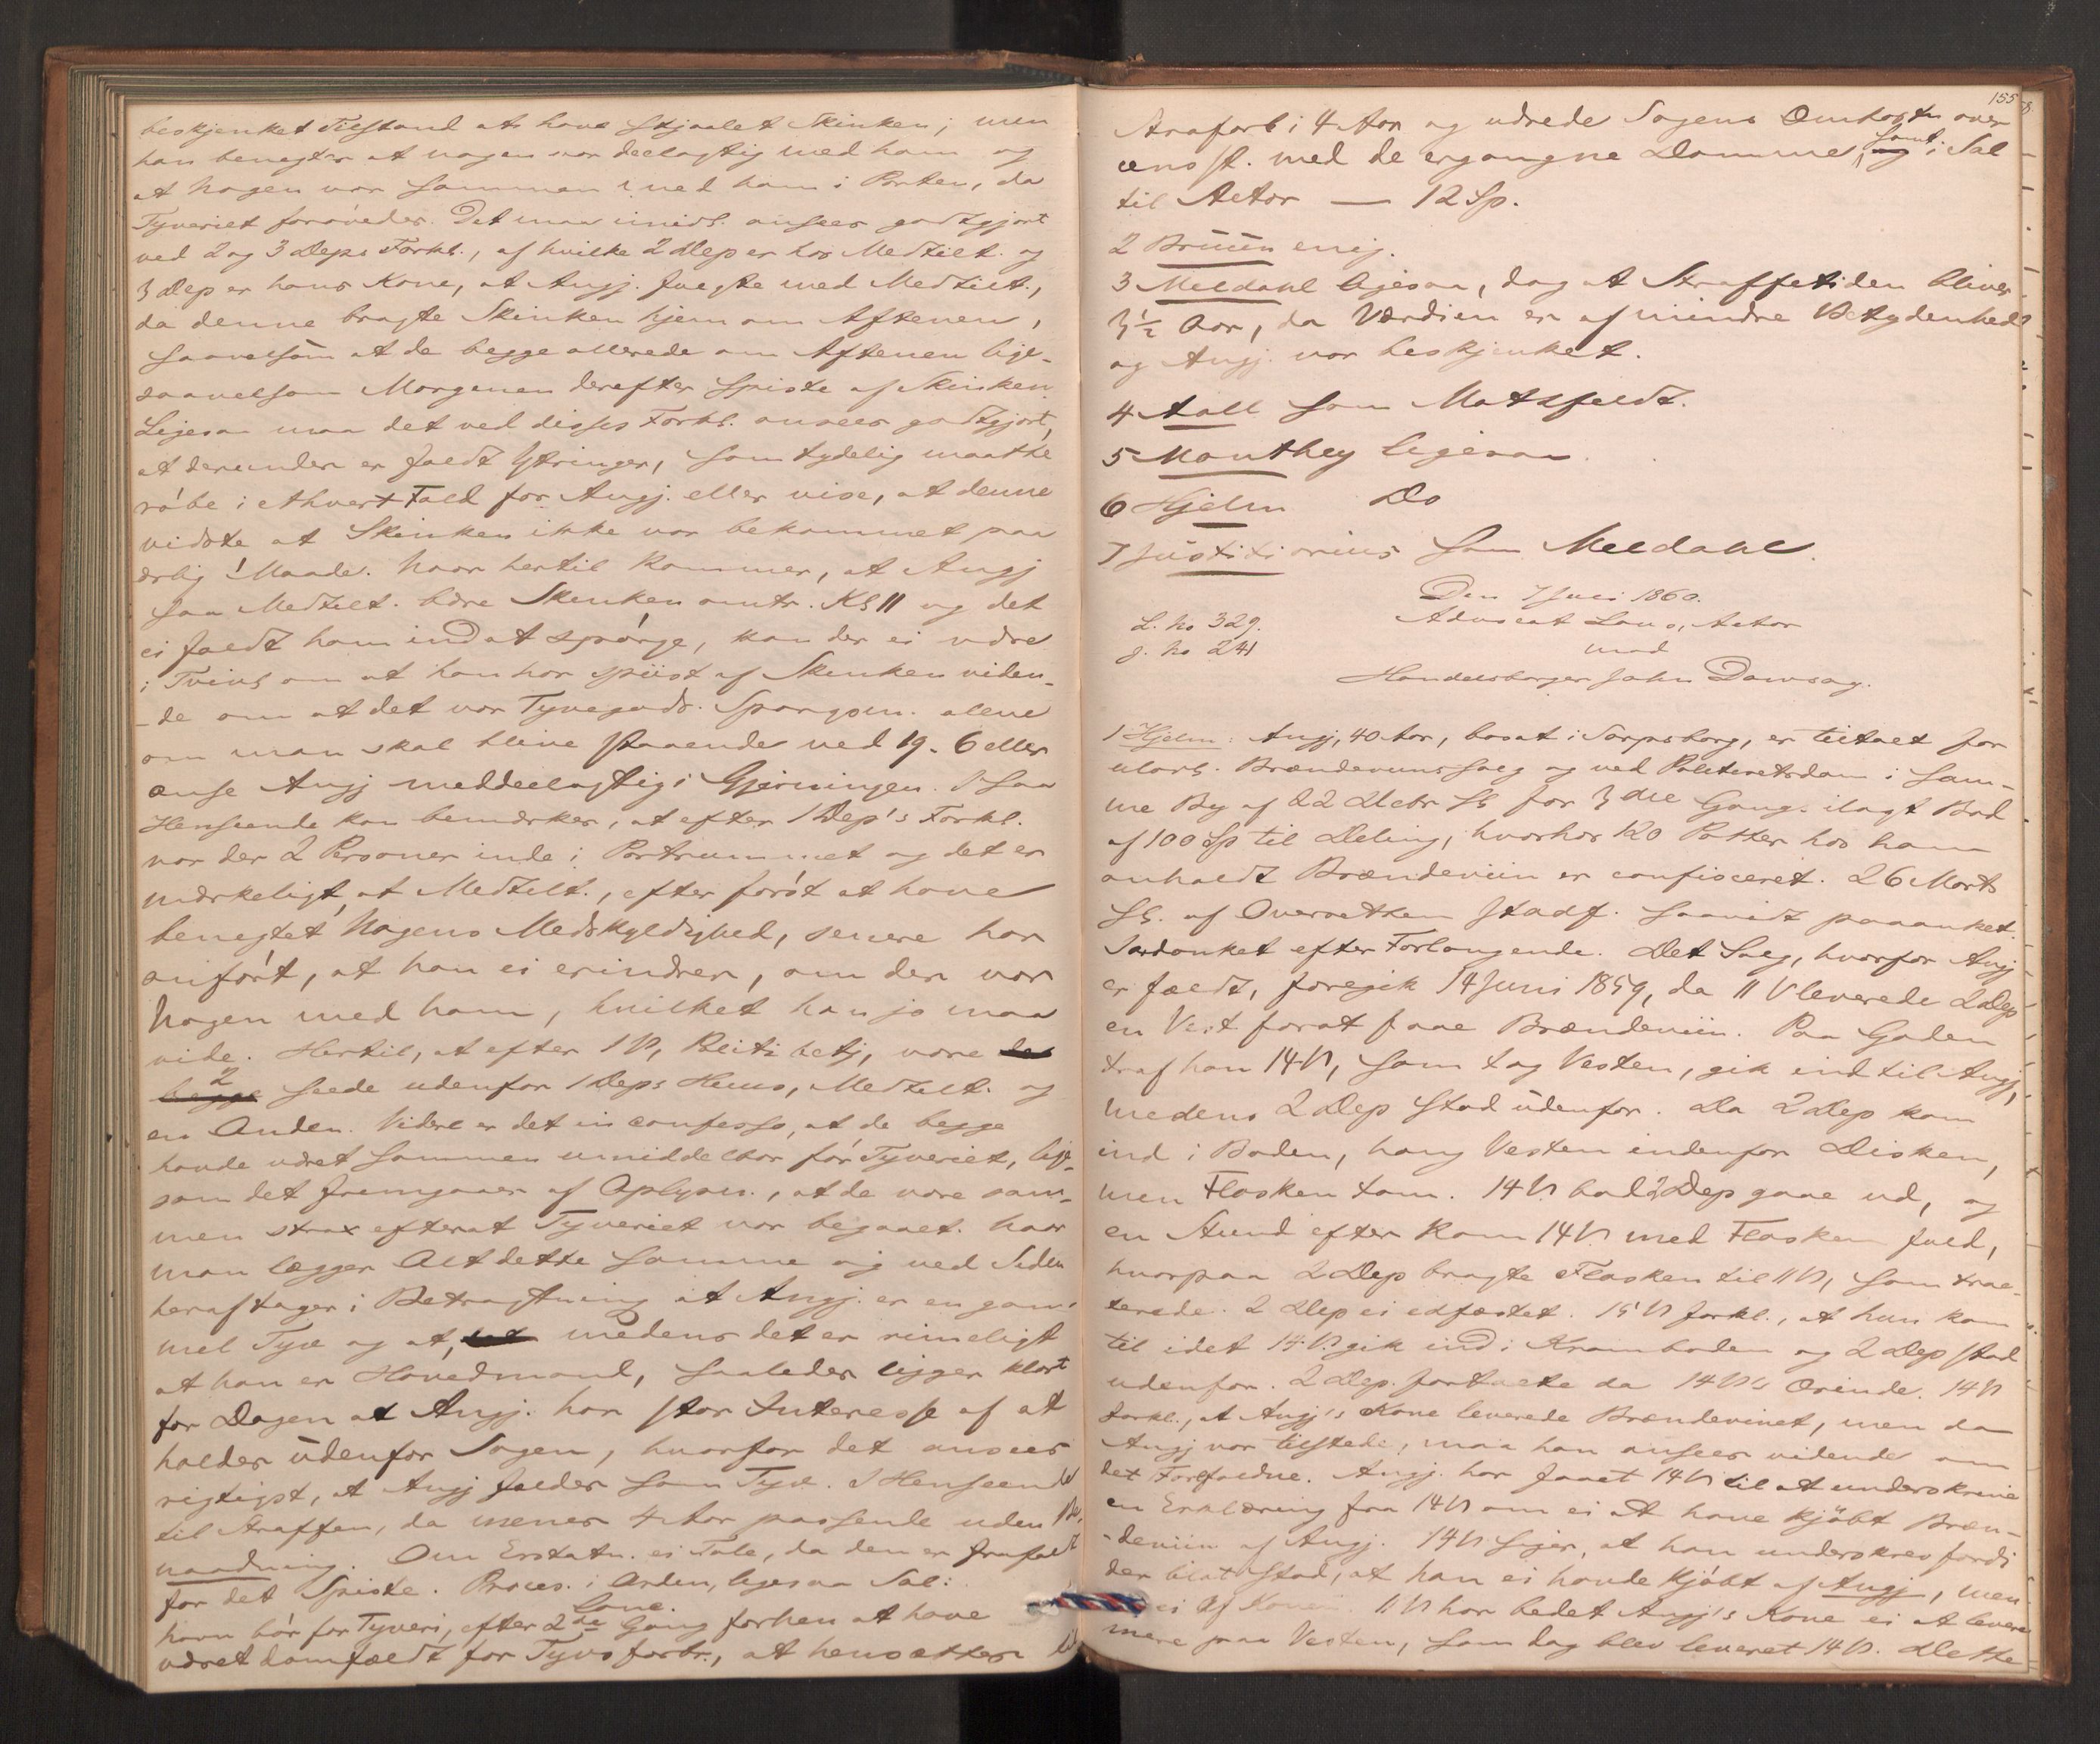 beskjenket Tilstand at have stjaalet Skinken; men
han benegter at nogen var deelagtig med ham og
at Nogen var sammen med ham i Porten, da
Tyveriet forøvedes. Det maa imidl. ansees godtgjort
ved 2 og 3 Deps Forkl., af hvilke 2 Dep er hos Medtilt. og
3 Dep er hans Kone, at Angj. fulgte med Medtilt.,
da denne bragte Skinken hjem om Aftenen,
saavelsom at de begge allerede om Aftenen lige-
saavelsom Morgenen derefter spiste af Skinken.
Ligesaa maa det ved disses Forkl. ansees godtgjort,
at derunder er faldt Yttringer, som tydelig maatte
røbe i ethvert Fald for Angj. eller vise, at denne
vidste at Skinken ikke var bekommet paa
ærlig Maade. Naar hertil kommer, at Angj
saa Medtilt. bære Skinken omtr. Kl 11 og det
ei faldt ham ind at spørge, kan der ei være
i Tvivl om at han har spiist af Skinken viden-
-de om at det var Tyvegods. Spørgsm. alene
om man skal blive staaende ved 19-6 eller
anse Angj meddeelagtig i Gjerningen. I saa
Henseende kan bemærkes, at efter 1 Dep's Forkl.
var der 2 Personer inde i Portrummet og det er
mærkeligt, at Medtilt., efter først at have
benegtet Nogens Medskyldighed, senere har
anført, at han ei erindrer, om der var
Nogen med ham, hvilket han jo maa
vide. Hertil, at efter 1 V, Politibetj, vare
2 seede udenfor 1 Deps Huus, Medtilt. og
en Anden. Videre er det in confesso, at de begge
havde været sammen umiddelbar før Tyveriet, lige-
som det fremgaaer af Oplysn., at de vare sam-
men strax efterat Tyveriet var begaaet. Naar
man lægger Alt dette sammen og ved Siden
heraf tager i Betragtning at Angj. er en gam-
mel Tyv og at, medens det er rimeligt
at han er Hovedmand, saaledes ligger klart
for Dagen at Angj. har stor Interesse af at
holdes udenfor Sagen, hvorfor det ansees
rigtigst, at Angj fældes som Tyv. I Henseende
til Straffen, da menes 4 Aar passende uden Be-
naadning. Om Erstatn. ei Tale, da den er frafaldt
for det Spiste. Proces. i Orden, ligesaa Sal:
Conc.
havn bør for Tyveri, efter 2de Gang forhen at have
været domfældt for Tyvsforbr., at hensættes til
155
Strafarb i 4 Aar og udrede Sagens Omkostn over
ensst. med de ergangne Domme, samt i Sal
til Actor — 12 Sp.
2 Brüün enig.
3 Meldahl ligesaa, dog at Straffetiden bliver
3½ Aar, da Værdien er af mindre Betydenhed
og Angj. var beskjenket.
4 Aall som Motzfeldt.
5 Manthey ligesaa.
6 Hjelm Do
7 Justitiarius som Meldahl.
Den 7 Juni 1860.
L. No 329. Advocat Lous, Actor
J. No 241 mod
Handelsborger John Dawsay.
1 Hjelm: Angj, 40 Aar, bosat i Sarpsborg, er tiltalt for
ulovl. Brændeviinssalg og ved Politiretsdom i sam-
me By af 22 Debr Sl for 3die Gang ilagt Bod
af 100 Sp til Deling, hvorhos 120 Potter hos ham
anholdt Brændeviin er confisceret. 26 Marts
Sl. af Overretten stadf. saavidt paaanket.
Paaanket efter Forlangende. Det Salg, hvorfor Angj
er fældt, foregik 14 Juni 1859, da 11 V leverede 2 Dep
en Vest forat faae Brændeviin. Paa Gaden
traf han 14 V, som tog Vesten, gik ind til Angj,
medens 2 Dep stod udenfor. Da 2 Dep kom
ind i Boden, hang Vesten indenfor Disken,
men Flasken tom. 14 V bad 2 Dep gaae ud, og
en Stund efter kom 14 V med Flasken fuld,
hvorpaa 2 Dep bragte Flasken til 11 V, som trac-
terede. 2 Dep ei edfæstet. 15 V forkl., at hun kom
til idet 14 V. gik ind i Kramboden og 2 Dep stod
udenfor. 2 Dep. fortalte da 14 V's Ærinde. 14 V
forkl., at Angj's Kone leverede Brændevinet, men da
Angj var tilstede, maa han ansees vidende om
det Forefaldne. Angj. har faaet 14 V til at underskrive
en Erklæring fra 14 V om ei at have kjøbt Bræn-
-deviin af Angj. 14 V siger, at han underskrev fordi
der blot stod, at han ei havde kjøbt af Angj, men
ei af Konen. 11 V har bedet Angj's Kone ei at levere
mere paa Vesten, som dog blev leveret 14 V. Dette